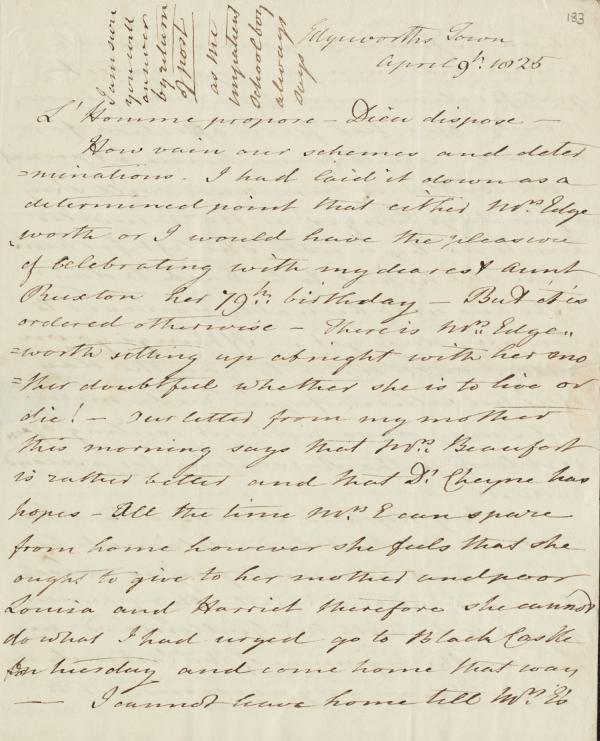 183
I am sure
you will
answer
by return
of post
as the
impatient
schoolboy
always
says
Edgeworths Town
April 9th. 1825
L'Homme propose - Dieu dispose -
How vain our schemes and deter
=minations. I had laid it down as a
determined point that either Mrs Edge
worth or I would have the pleasure
of celebrating with my dearest Aunt
Ruxton her 79th birthday - But it is
ordered otherwise - There is Mrs Edge„
=worth sitting up at night with her mo
=ther doubtful whether she is to live or
die! - Our letter from my mother
this morning says that Mrs Beaufort
is rather better and that Dr Cheyne has
hopes - All the time Mrs E can spare
from home however she feels that she
ought to give to her mother and poor
Louisa and Harriet therefore she cannot
do what I had urged go to Black Castle
on tuesday and come home that way
— I cannot leave home till Mrs E's